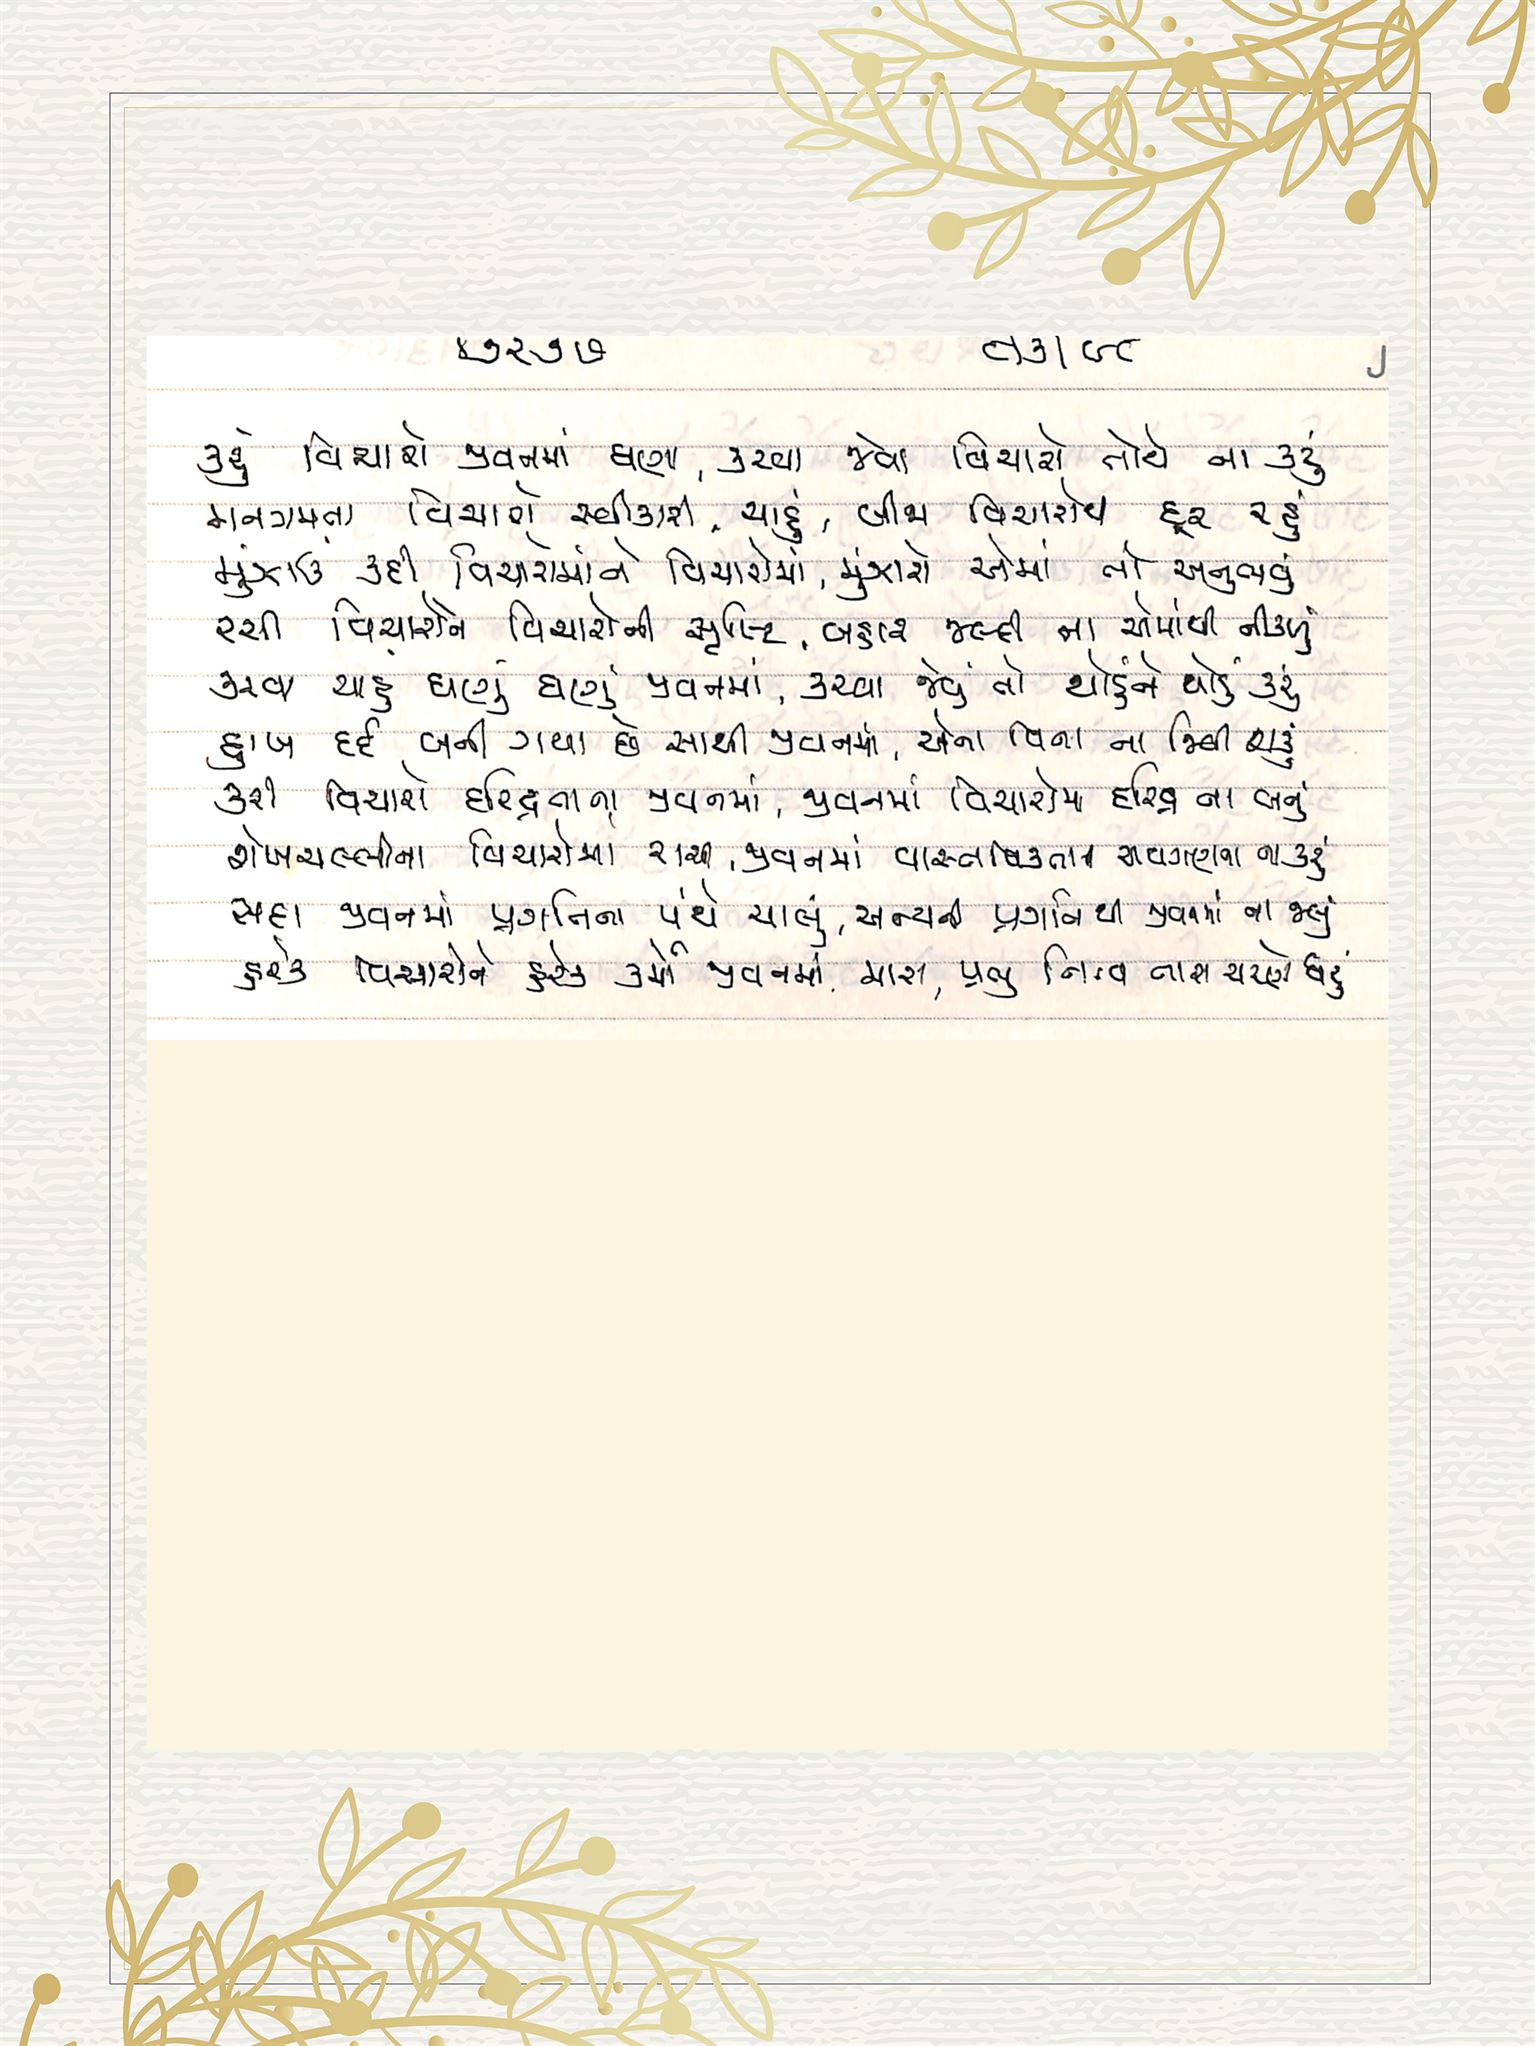 કરું વિચારો જીવનમાં ઘણા, કરવા જેવા વિચારો તોયે ના કરું
મનગમતા વિચારો સ્વીકારી, ચાહું, બીજા વિચારોથી દૂર રહું
મુંઝાઉં કદી વિચારોમાંને વિચારોમાં, મુંઝારો એમાં તો અનુભવું
રચી વિચારોને વિચારોની સૃષ્ટિ, બહાર જલ્દી ના એમાંથી નીકળું
કરવા ચાહું ઘણું ઘણું જીવનમાં, કરવા જેવું તો થોડુંને થોડું કરું
દુઃખ દર્દ બની ગયા છે સાથી જીવનમાં, એના વિના ના જિવી શકું
કરી વિચારો દરિદ્રતાના જીવનમાં, જીવનમાં વિચારોમાં દરિદ્ર ના બનું
શેખચલ્લીના વિચારોમાં રાચી, જીવનમાં વાસ્તવિકતાની અવગણના ના કરું
સદા જીવનમાં પ્રગતિના પંથે ચાલું, અન્યની પ્રગતિથી જીવનમાં ના જલું
હરેક વિચારોને હરેક કર્મો જીવનમાં મારા, પ્રભુ નિત્ય તારા ચરણે ધરું